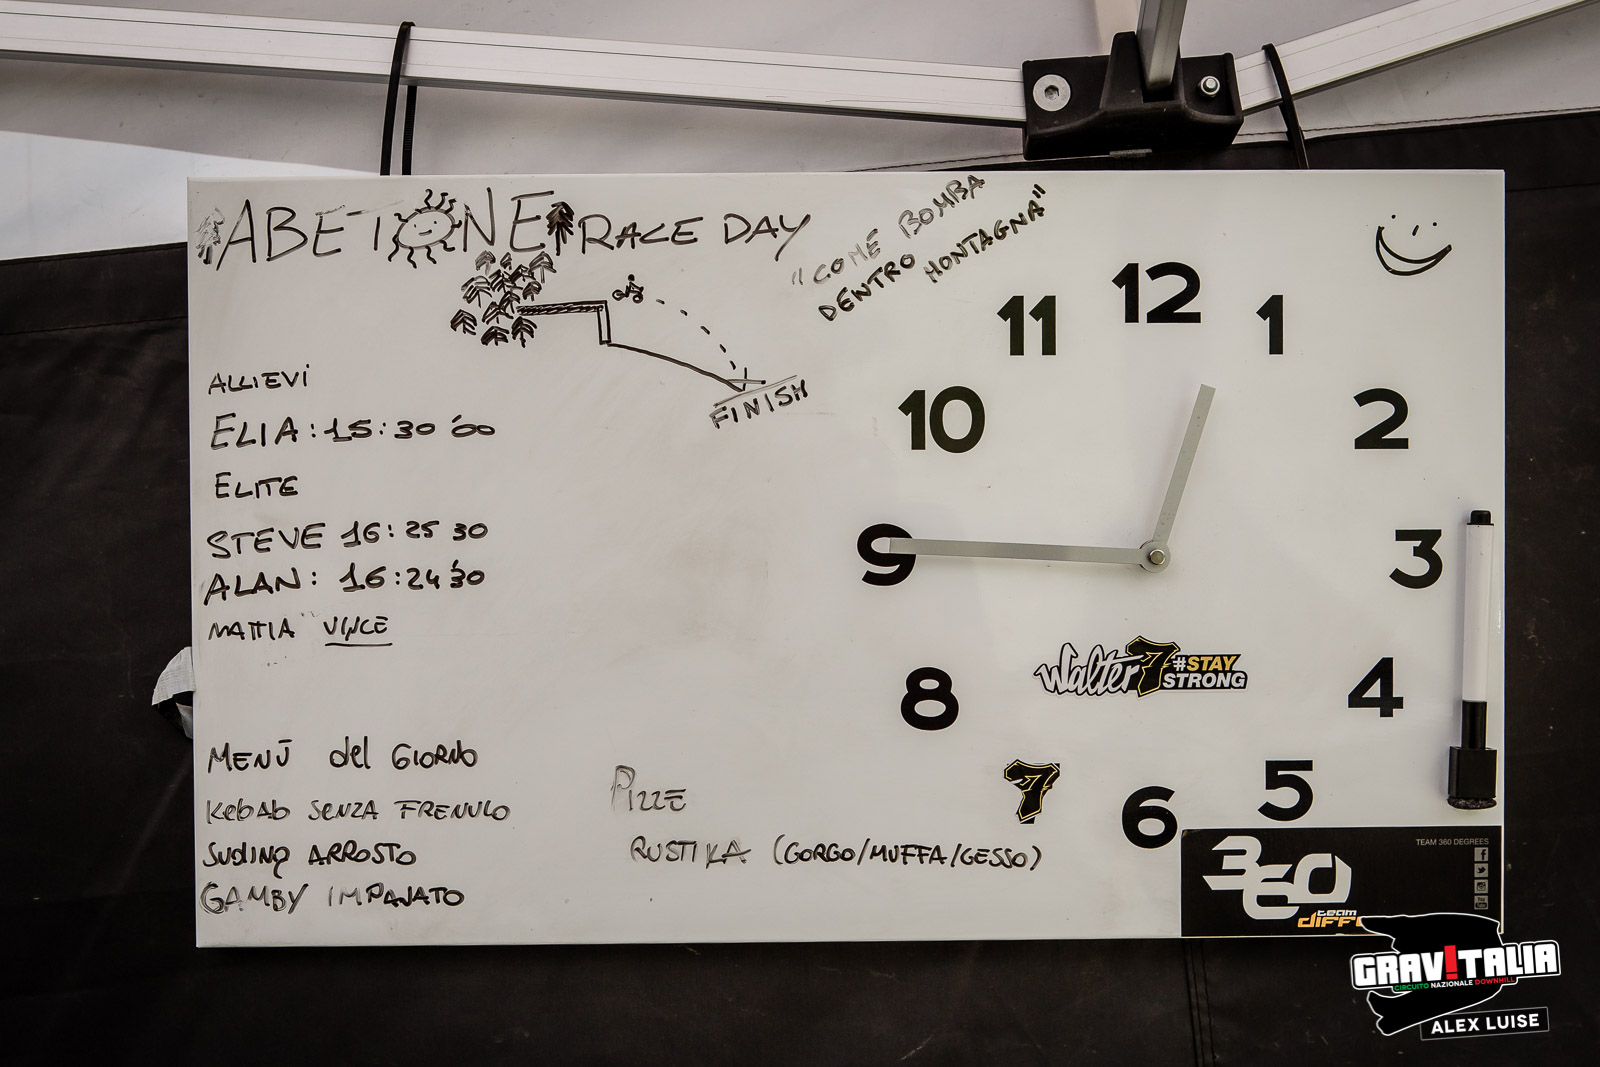 ABETONE RACE DAY
"COME BOMBA
DENTRO MONTAGNA"
FINISH
ALLIEVI
ELIA: 15:30'00
ELITE
STEVE 16:25 30
ALAN: 16:24'30
MATTIA VINCE
MENÙ del GIORNO
KEBAB SENZA FRENULO
SUDINO ARROSTO
GAMBY IMPANATO
PIZZE
RUSTIKA (GORGO/MUFFA/GESSO)
12
1
2
3
4
5
6
8
9
10
11
Walter 7 #STAY STRONG
7
TEAM 360 DEGREES
360
team
GRAV!TALIA
CIRCUITO NAZIONALE DOWNHILL
ALEX LUISE